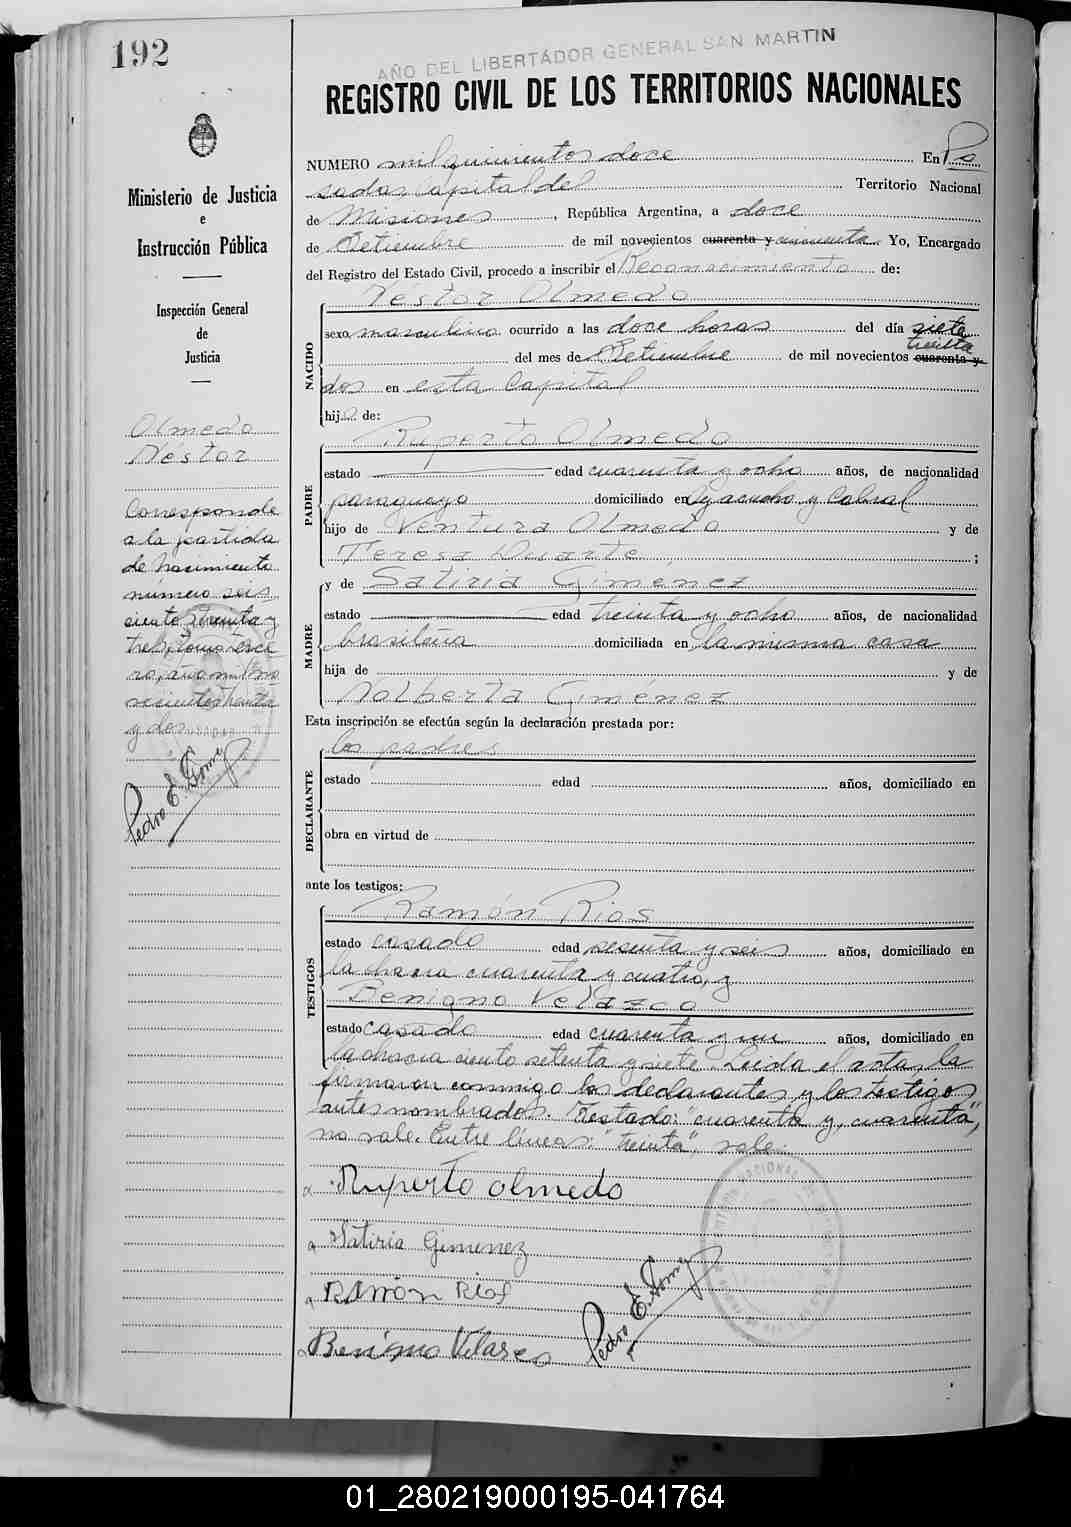 192
AÑO DEL LIBERTADOR GENERAL SAN MARTIN
REGISTRO CIVIL DE LOS TERRITORIOS NACIONALES
Ministerio de Justicia
e
Instrucción Pública
Inspección General
de
Justicia
Olmedo
Néstor
Corresponde
a la partida
de Nacimiento
número seis
ciento treinta y
tres, tomo terce
ro, año mil no
vecientos treinta
y dos
Pedro E. Gomez
NUMERO mil quinientos doce En Po
sadas, Capital del Territorio Nacional
de Misiones, República Argentina, a doce
de Setiembre de mil novecientos cuarenta y cincuenta. Yo, Encargado
del Registro del Estado Civil, procedo a inscribir el Reconocimiento de:
Néstor Olmedo
NACIDO
sexo masculino ocurrido a las doce horas del día siete
treinta
del mes de Setiembre de mil novecientos cuarenta y
dos en esta Capital
hijo de:
Ruperto Olmedo
PADRE
estado edad cuarenta y ocho años, de nacionalidad
paraguaya domiciliado en Ayacucho y Cabral
hijo de Ventura Olmedo y de
Teresa Duarte ;
y de Satiria Giménez
MADRE
estado edad treinta y ocho años, de nacionalidad
brasileña domiciliada en la misma casa
hija de y de
Nalberta Giménez
Esta inscripción se efectúa según la declaración prestada por:
los padres
DECLARANTE
estado edad años, domiciliado en
obra en virtud de
ante los testigos:
Ramón Rios
TESTIGOS
estado casado edad sesenta y seis años, domiciliado en
la chacra cuarenta y cuatro, y
Benigno Velazco
estado casado edad cuarenta y un años, domiciliado en
la chacra ciento setenta y siete. Leída el acta, la
firmaron conmigo los declarantes y los testigos
antes nombrados. Testado: "cuarenta y, cuarenta",
no vale. Entre líneas: "treinta", vale.
Ruperto Olmedo
Satiria Gimenez
Ramón Rios
Benigno Velasco
Pedro E. Gomez
01_280219000195-041764